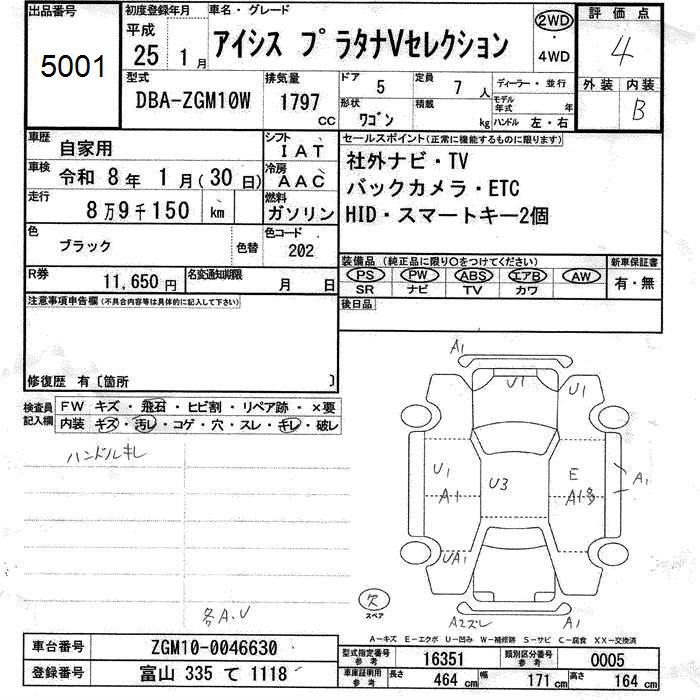 出品番号
5001
初度登録年月
平成
25 1月
車名・グレード
アイシス プラタナVセレクション
2WD
・
4WD
評価点
4
外装 内装
B
型式
DBA-ZGM10W
排気量
1797
cc
ドア 5
定員 7 人
形状 ワゴン
積載 kg
ディーラー・並行
モデル年式 年
ハンドル 左・右
車歴 自家用
車検 令和 8年 1月(30日)
走行 8万9千150 km
色 ブラック 色替
シフト IAT
冷房 AAC
燃料 ガソリン
色コード 202
R券 11,650円
名変通知期限 月 日
セールスポイント(正常に機能するものに限ります)
社外ナビ・TV
バックカメラ・ETC
HID・スマートキー2個
装備品 (純正品に限り○をつけてください)
PS PW ABS エアB AW
SR ナビ TV カワ
新車保証書
有・無
後日品
注意事項申告欄(不具合内容等は具体的に記入して下さい)
修復歴 有〔箇所 〕
検査員記入欄
FW キズ・飛石・ヒビ割・リペア跡・×要
内装 キズ・汚レ・コゲ・穴・スレ・キレ・破レ
ハンドルキレ
各A.U
A1
U1 U1
U1 E
A1 U3 A1多 A1
UA1
A2ズレ A1
欠
スペア
A-キズ E-エクボ U-凹み W-補修跡 S-サビ C-腐食 XX-交換済
車台番号 ZGM10-0046630
登録番号 富山 335 て 1118
型式指定番号参考 16351
類別区分番号参考 0005
車庫証明用参考 長さ 464cm 幅 171cm 高さ 164cm